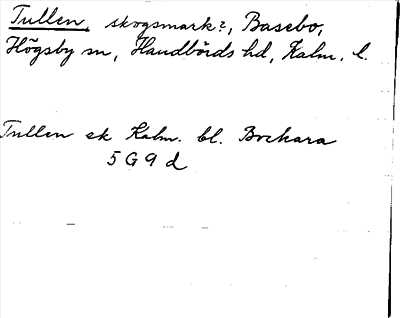 Tullen, skogsmark?, Basebo,
Högsby sn, Handbörds hd, Kalm. l.
Tullen ek Kalm. bl. Bockara
5 G 9 d